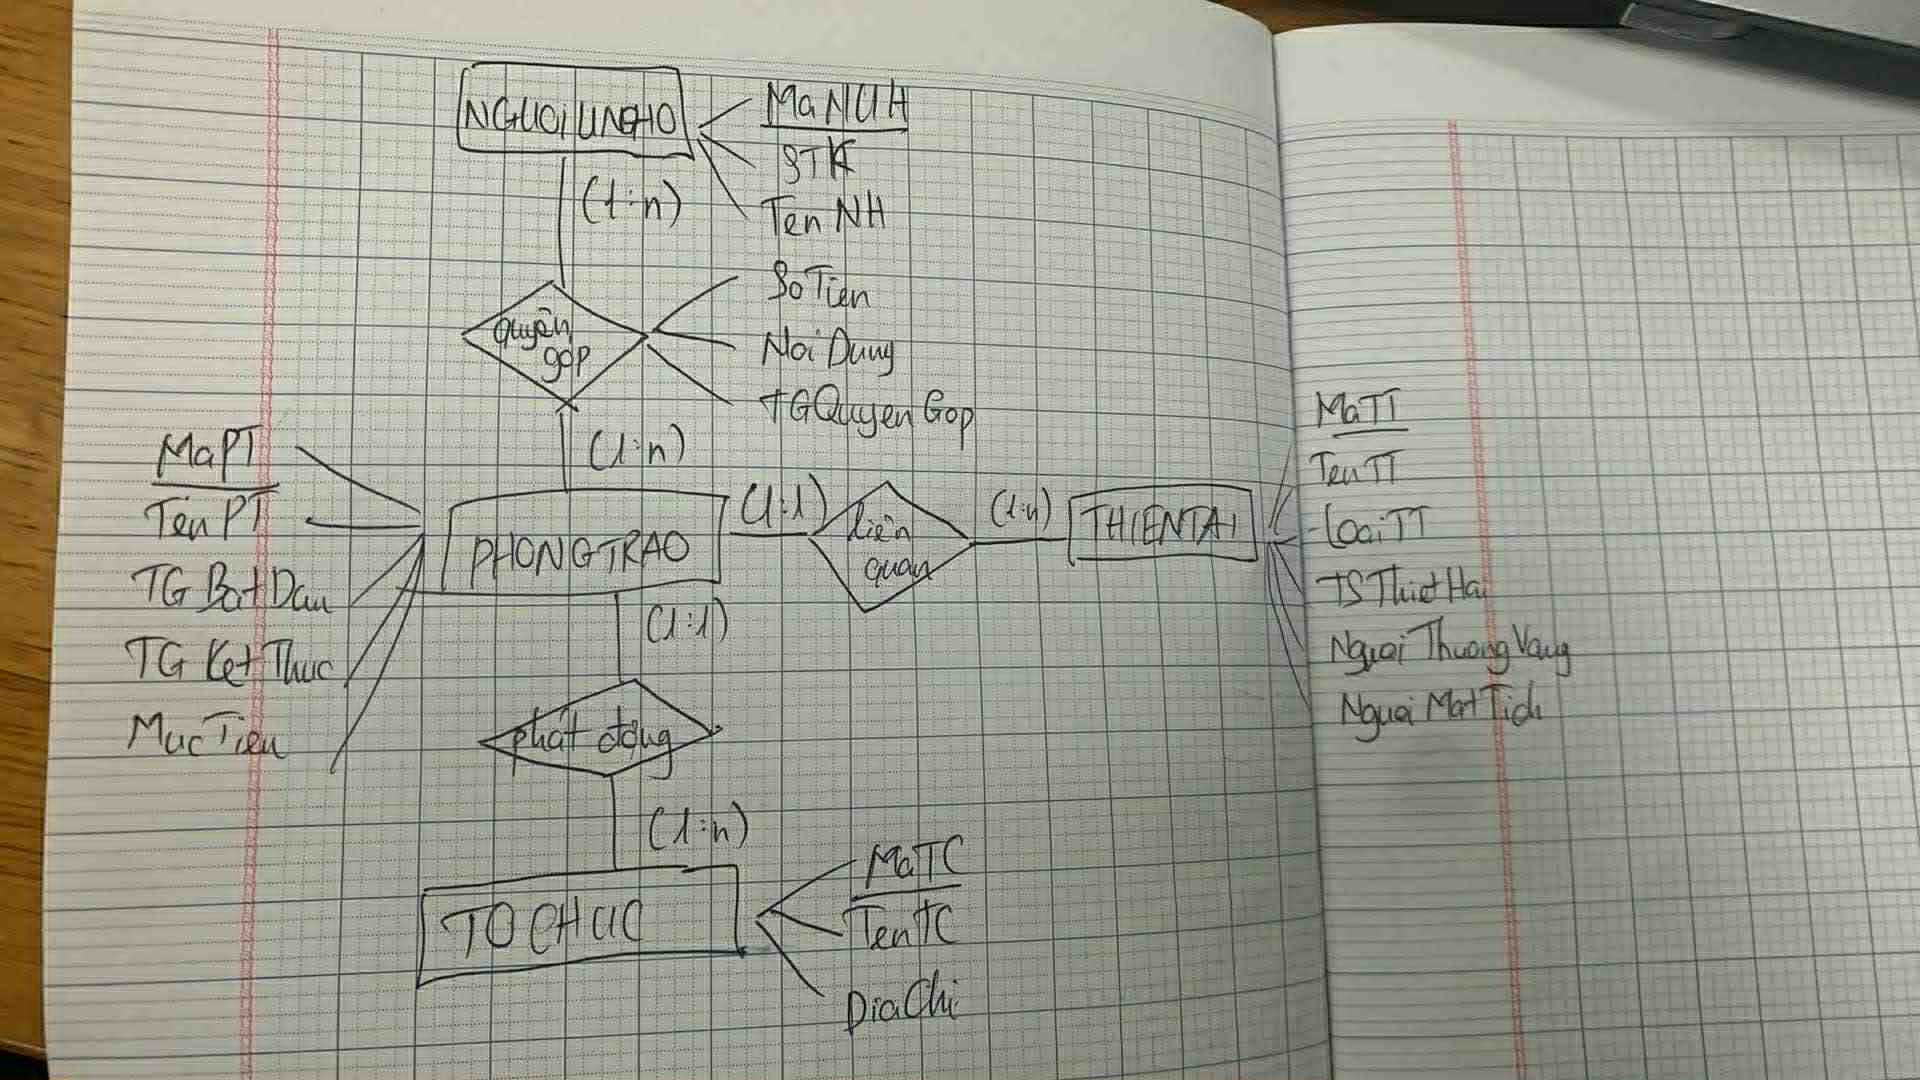 NGUOIUNGHO
MaNUH
STK
TenNH
(1:n)
quyên
góp
SoTien
NoiDung
TGQuyenGop
(1:n)
MaPT
TenPT
TG BatDau
TG KetThuc
MucTieu
PHONGTRAO
(1:1)
liên
quan
(1:n)
THIENTAI
MaTT
TenTT
LoaiTT
TSThietHai
NguoiThuongVang
NguoiMatTich
(1:1)
phát động
(1:n)
TOCHUC
MaTC
TenTC
DiaChi